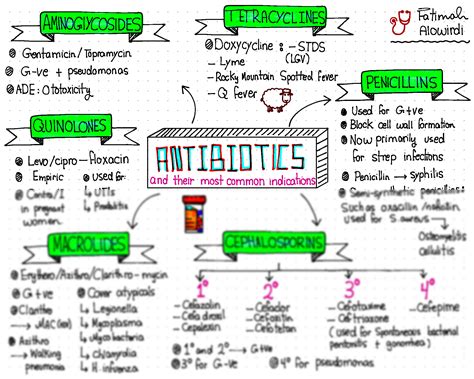 AMINOGLYCOSIDES
Gentamicin / Topramycin
G-ve + pseudomonas
ADE: Ototoxicity
TETRACYCLINES
Doxycycline : - STDS
(LGV)
- Lyme
- Rocky Mountain Spotted fever
- Q fever
Fatimah
Alowirdi
PENICILLINS
Used for G+ve
Block cell wall formation
Now primarily used
for strep infections
Penicillin → syphilis
Semi-synthetic penicillins:
Such as oxacillin/nafcillin
used for S.aureus →
Osteomyelitis
cellulitis
QUINOLONES
Levo/cipro-floxacin
Empiric used for:
Contra/I → UTIs
in pregnant → Prostatitis
women.
ANTIBIOTICS
and their most common indications
MACROLIDES
Erythero/Azithro/Clarithro-mycin
G+ve Cover atypicals
Clarithro → Legionella
→ MAC (HIV) → Mycoplasma
Azithro → Mycobacteria
→ Walking → chlamydia
pneumonia → H-influenza
CEPHALOSPORINS
1° 2° 3° 4°
- Cefazolin - Cefaclor - Cefotaxime - Cefepime
- Cefadroxil - Cefoxitin - Ceftriaxone
- Cepalexin - Cefotetan (used for Spontaneous bacterial
penitonitis + gonorrhea)
1° and 2° → G+ve
3° for G-ve 4° for pseudomonas